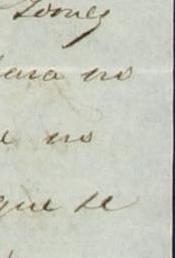 Gomez
para no
e no
que se